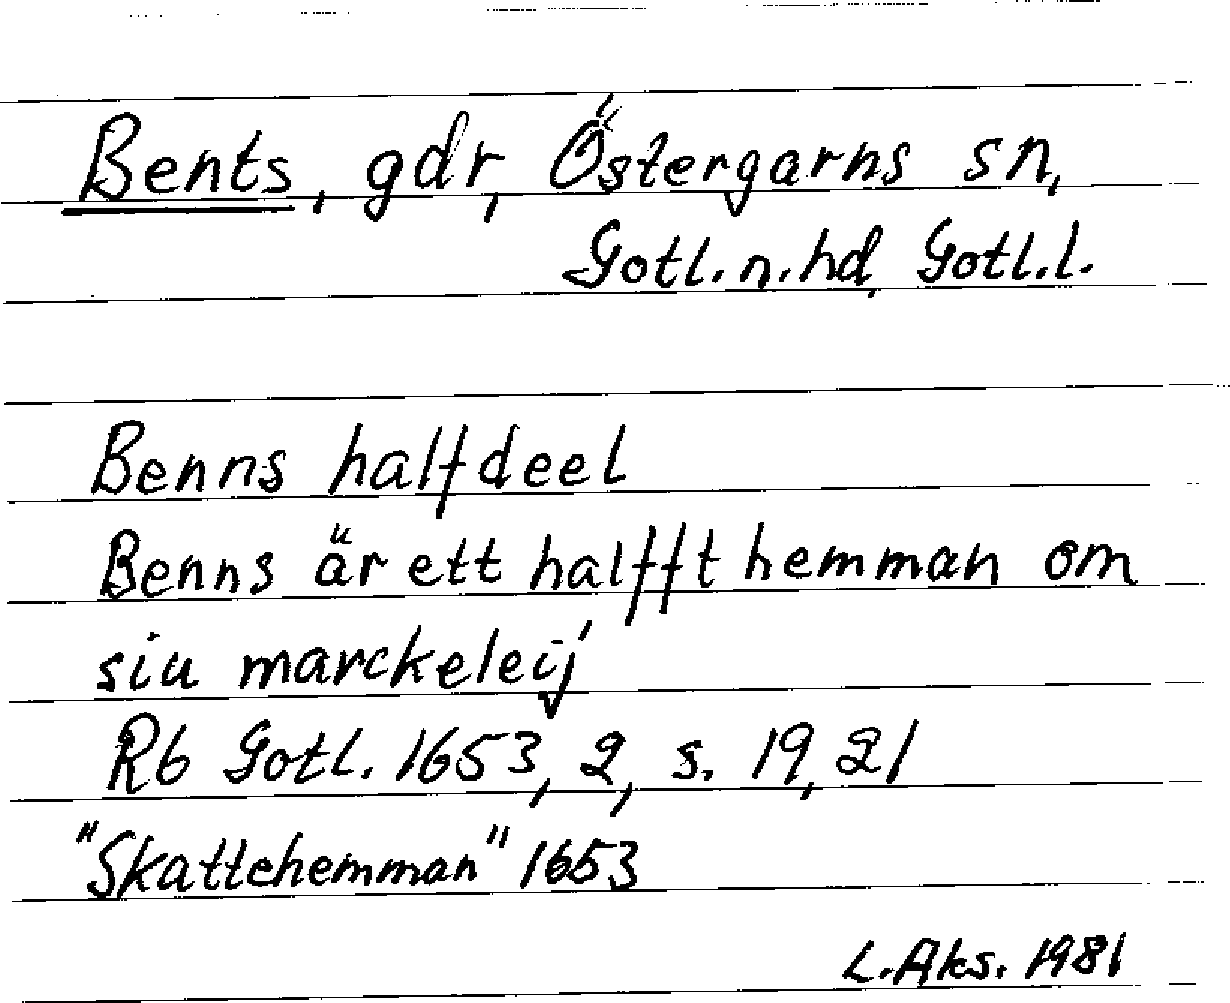 Bents, gdr, Östergarns sn,
Gotl. n. hd, Gotl. l.
Benns halfdeel
Benns är ett halfft hemman om
siu marckeleij
Rb Gotl. 1653, 2, s. 19, 21
"Skattehemman" 1653
L. Aks. 1981